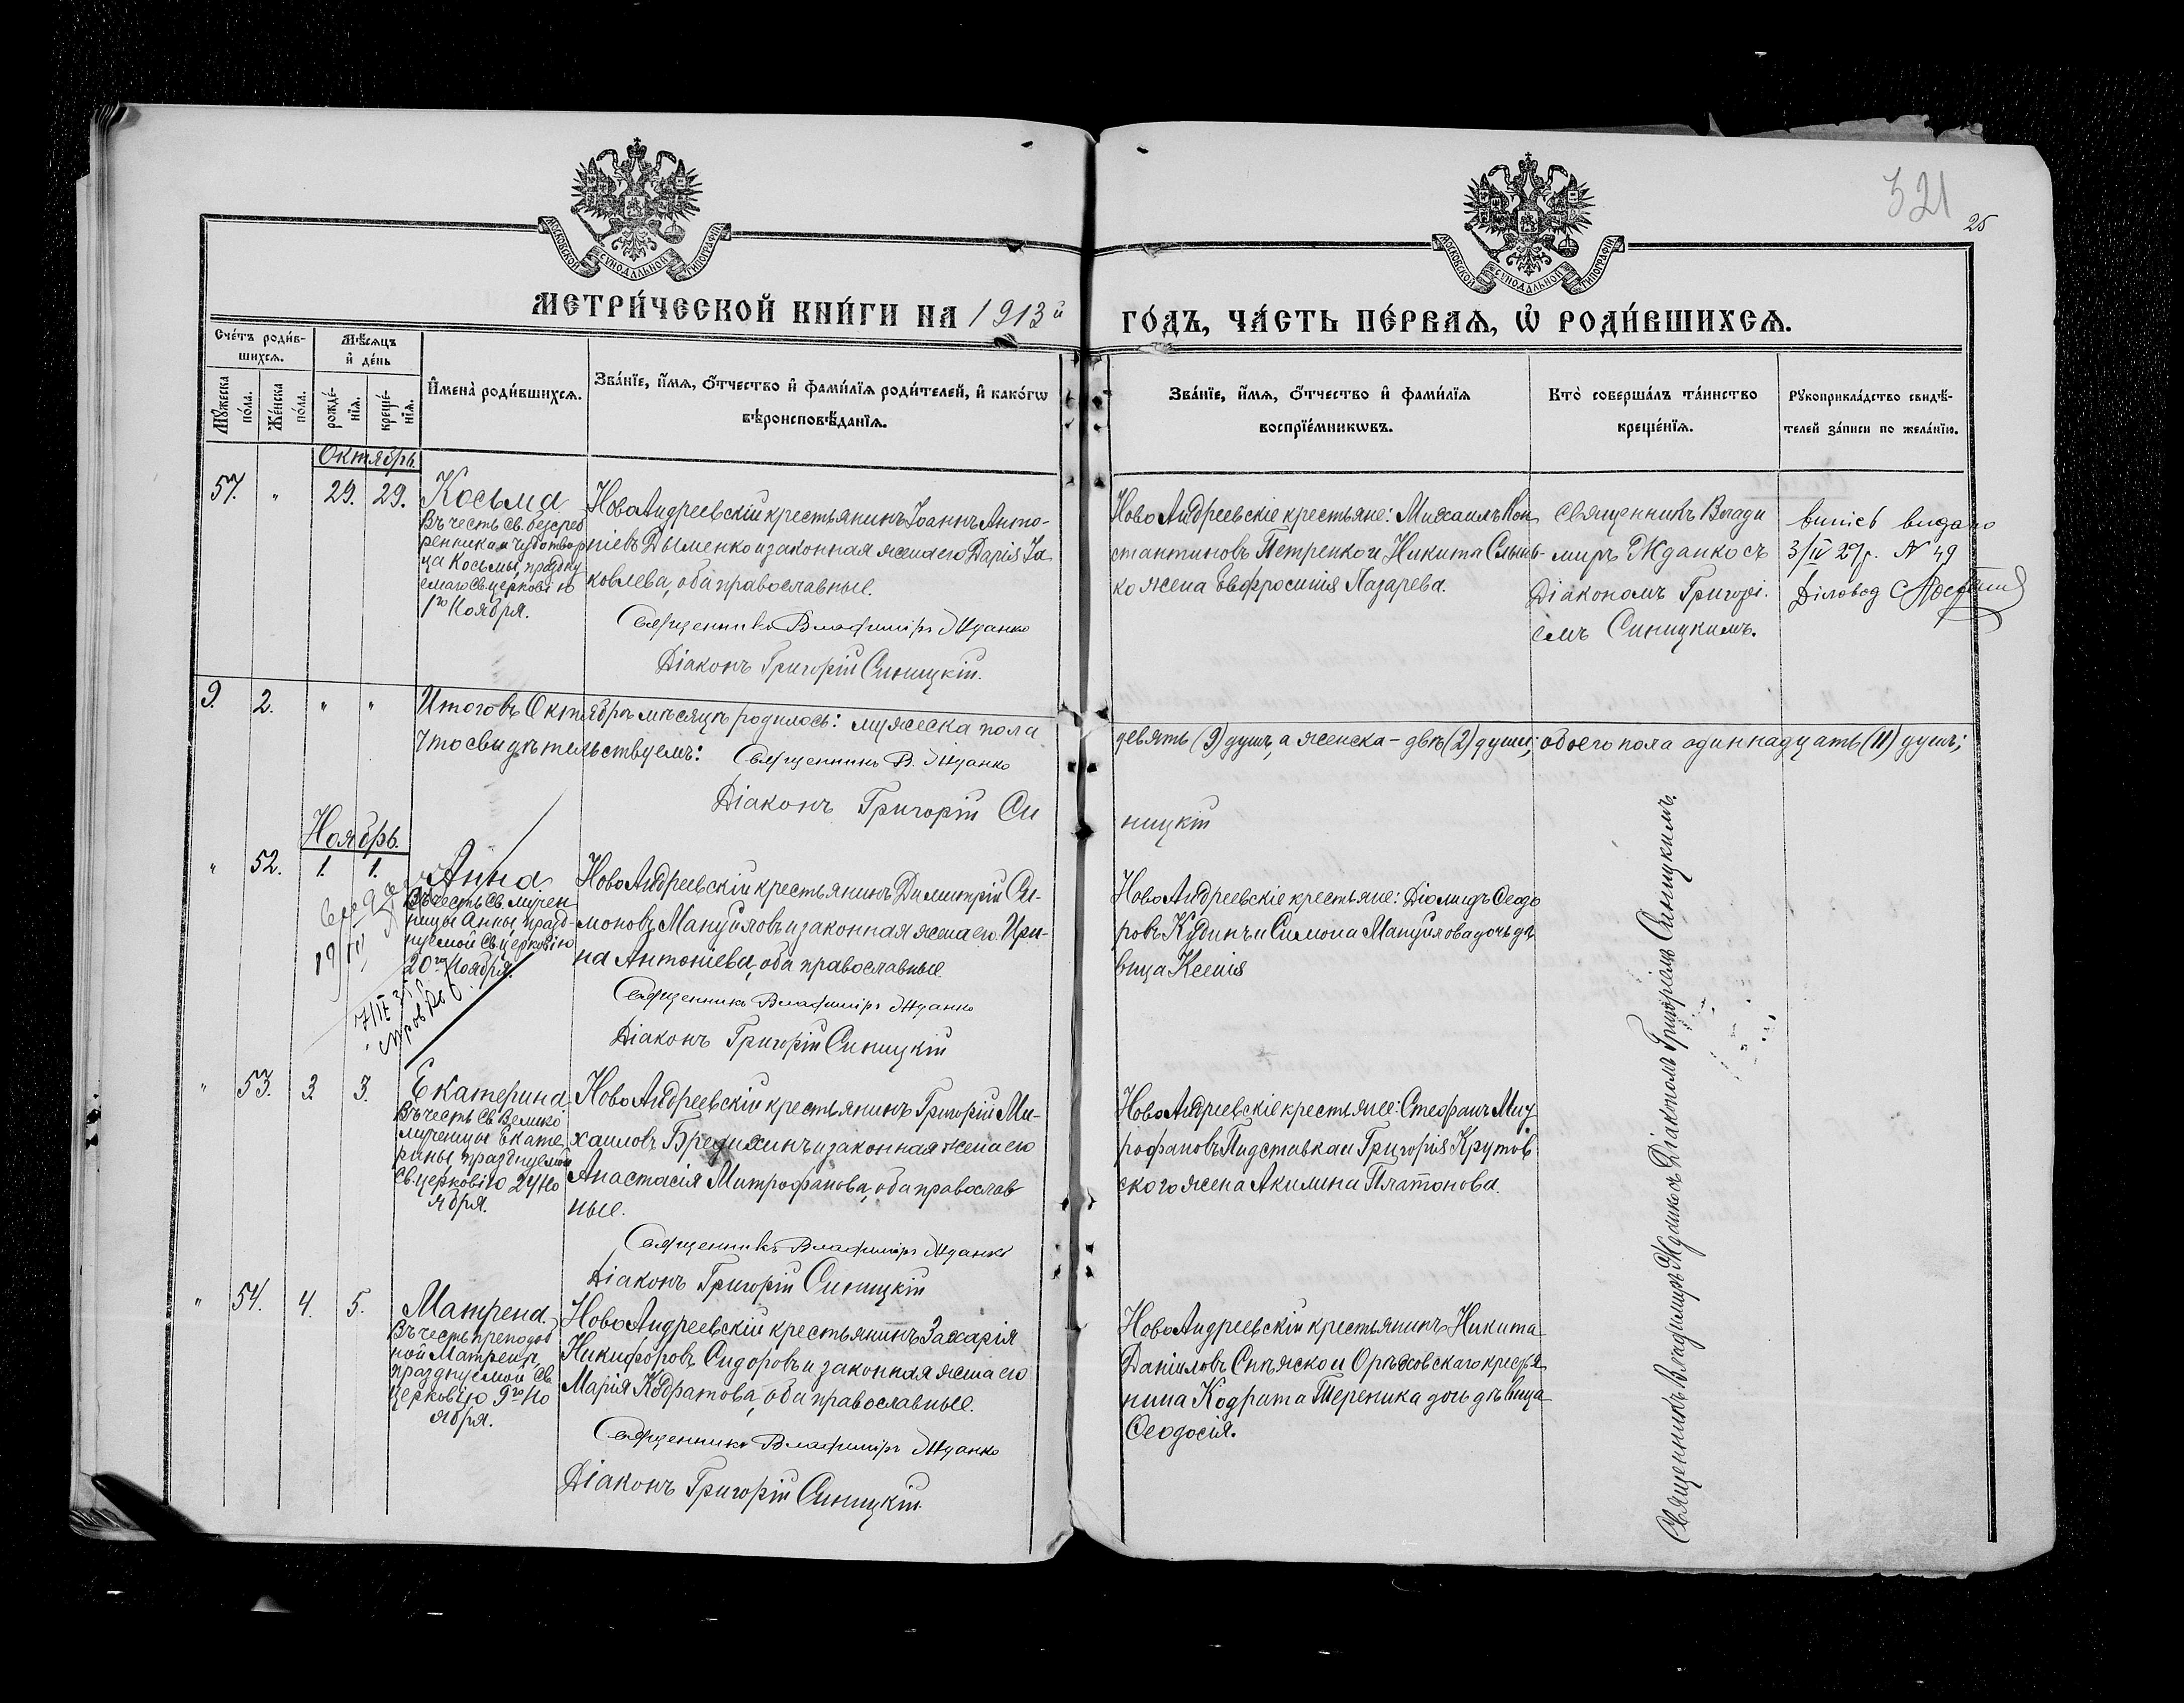 321
25
МОСКОВСКОЙ СѴНОДАЛЬНОЙ ТИПОГРАФІИ
МОСКОВСКОЙ СѴНОДАЛЬНОЙ ТИПОГРАФІИ
МЕТРИ́ЧЕСКОЙ КНИ́ГИ НА 1913й
ГО́ДЪ, ЧА́СТЬ ПЕ́РВАѦ, Ѽ РОДИ́ВШИХСѦ.
Сче́тъ роди́в-
шихсѧ.
Мѣ́сѧцъ
и҆ де́нь
Мꙋ́жеска
по́ла.
Же́нска
по́ла.
рожде́-
нїѧ.
креще́-
нїѧ.
И҆мена̀ роди́вшихсѧ.
Зва́нїе, и҆́мѧ, ѻ҆́тчество и҆ фами́лїѧ роди́телей, и҆ како́гѡ
вѣроисповѣ́данїѧ.
Зва́нїе, и҆́мѧ, ѻ҆́тчество и҆ фами́лїѧ
воспрїе́мникѡвъ.
Кто̀ соверша́лъ та́инство
креще́нїѧ.
Рꙋкоприкла́дство свидѣ́-
телей за́писи по жела́нїю.
Октябрь.
57. " 29. 29.
Косьма
Въ честь Св. безсреб
ренника и чудотвор
ца Косьмы, праздну
емаго Св. церковію
1го Ноября.
НовоАндреевскій крестьянинъ Іоаннъ Анто-
ніевъ Дыменко и законная жена его Дарія Іа
ковлева, оба православные.
Священникъ Владиміръ Жданко
Діаконъ Григорій Синицкій.
НовоАндреевскіе крестьяне: Михаилъ Кон
стантиновъ Петренко и Никита
ко жена Евфросинія Лазарева.
Священникъ Влади
миръ Жданко съ
Діакономъ Григорі
емъ Синицкимъ.
випісь видано
3/IV 29р. N 49
Діловод
9. 2. " "
Итого въ Октябрѣ мѣсяцѣ родилось: мужеска пола
девять (9) душъ, а женска - двѣ (2) души; обоего пола одиннадцать (11) душъ;
Что свидѣтельствуемъ: Священникъ В. Жданко
Діаконъ Григорій Си
ницкій
Ноябрь.
" 52. 1. 1.
Анна
Въ честь Св. мучен
ницы Анны, празд-
нуемой Св. церковію
20го Ноября.
19/IV
7/IV 35 р.
НовоАндреевскій крестьянинъ Димитрій Си-
моновъ Мануйловъ и законная жена его Ири-
на Антоніева, оба православные.
Священникъ Владиміръ Жданко
Діаконъ Григорій Синицкій
НовоАндреевскіе крестьяне: Діомидъ Ѳеодо
ровъ Кудинъ и Симона Мануйлова дочь дѣ
вица Ксенія
" 53. 3. 3.
Екатерина
Въ честь Св. Велико
мученицы Екате
рины, празднуемой
Св. церковію 24 Но
ября.
НовоАндреевскій крестьянинъ Григорій Ми-
хаиловъ Бредихинъ и законная жена его
Анастасія Митрофанова, оба православ
ные.
Священникъ Владиміръ Жданко
Діаконъ Григорій Синицкій
НовоАндреевскіе крестьяне: Стефанъ Мит
рофановъ Пидставка и Григорія Крутов
ского жена Акилина Платонова.
" 54. 4. 5.
Матрена.
Въ честь преподоб
ной Матрены,
празднуемой Св.
церковію 9го Но
ября.
НовоАндреевскій крестьянинъ Захарія
Никифоровъ Сидоровъ и законная жена его
Марія Кодратова, оба православные.
Священникъ Владиміръ Жданко
Діаконъ Григорій Синицкій.
НовоАндреевскій крестьянинъ Никита
Даніиловъ Снѣжко и Орѣховскаго крестья
нина Кодрата Тереника дочь дѣвица
Ѳеодосія.
Священникъ Владимиръ Жданко съ Діакономъ Григоріемъ Синицкимъ.